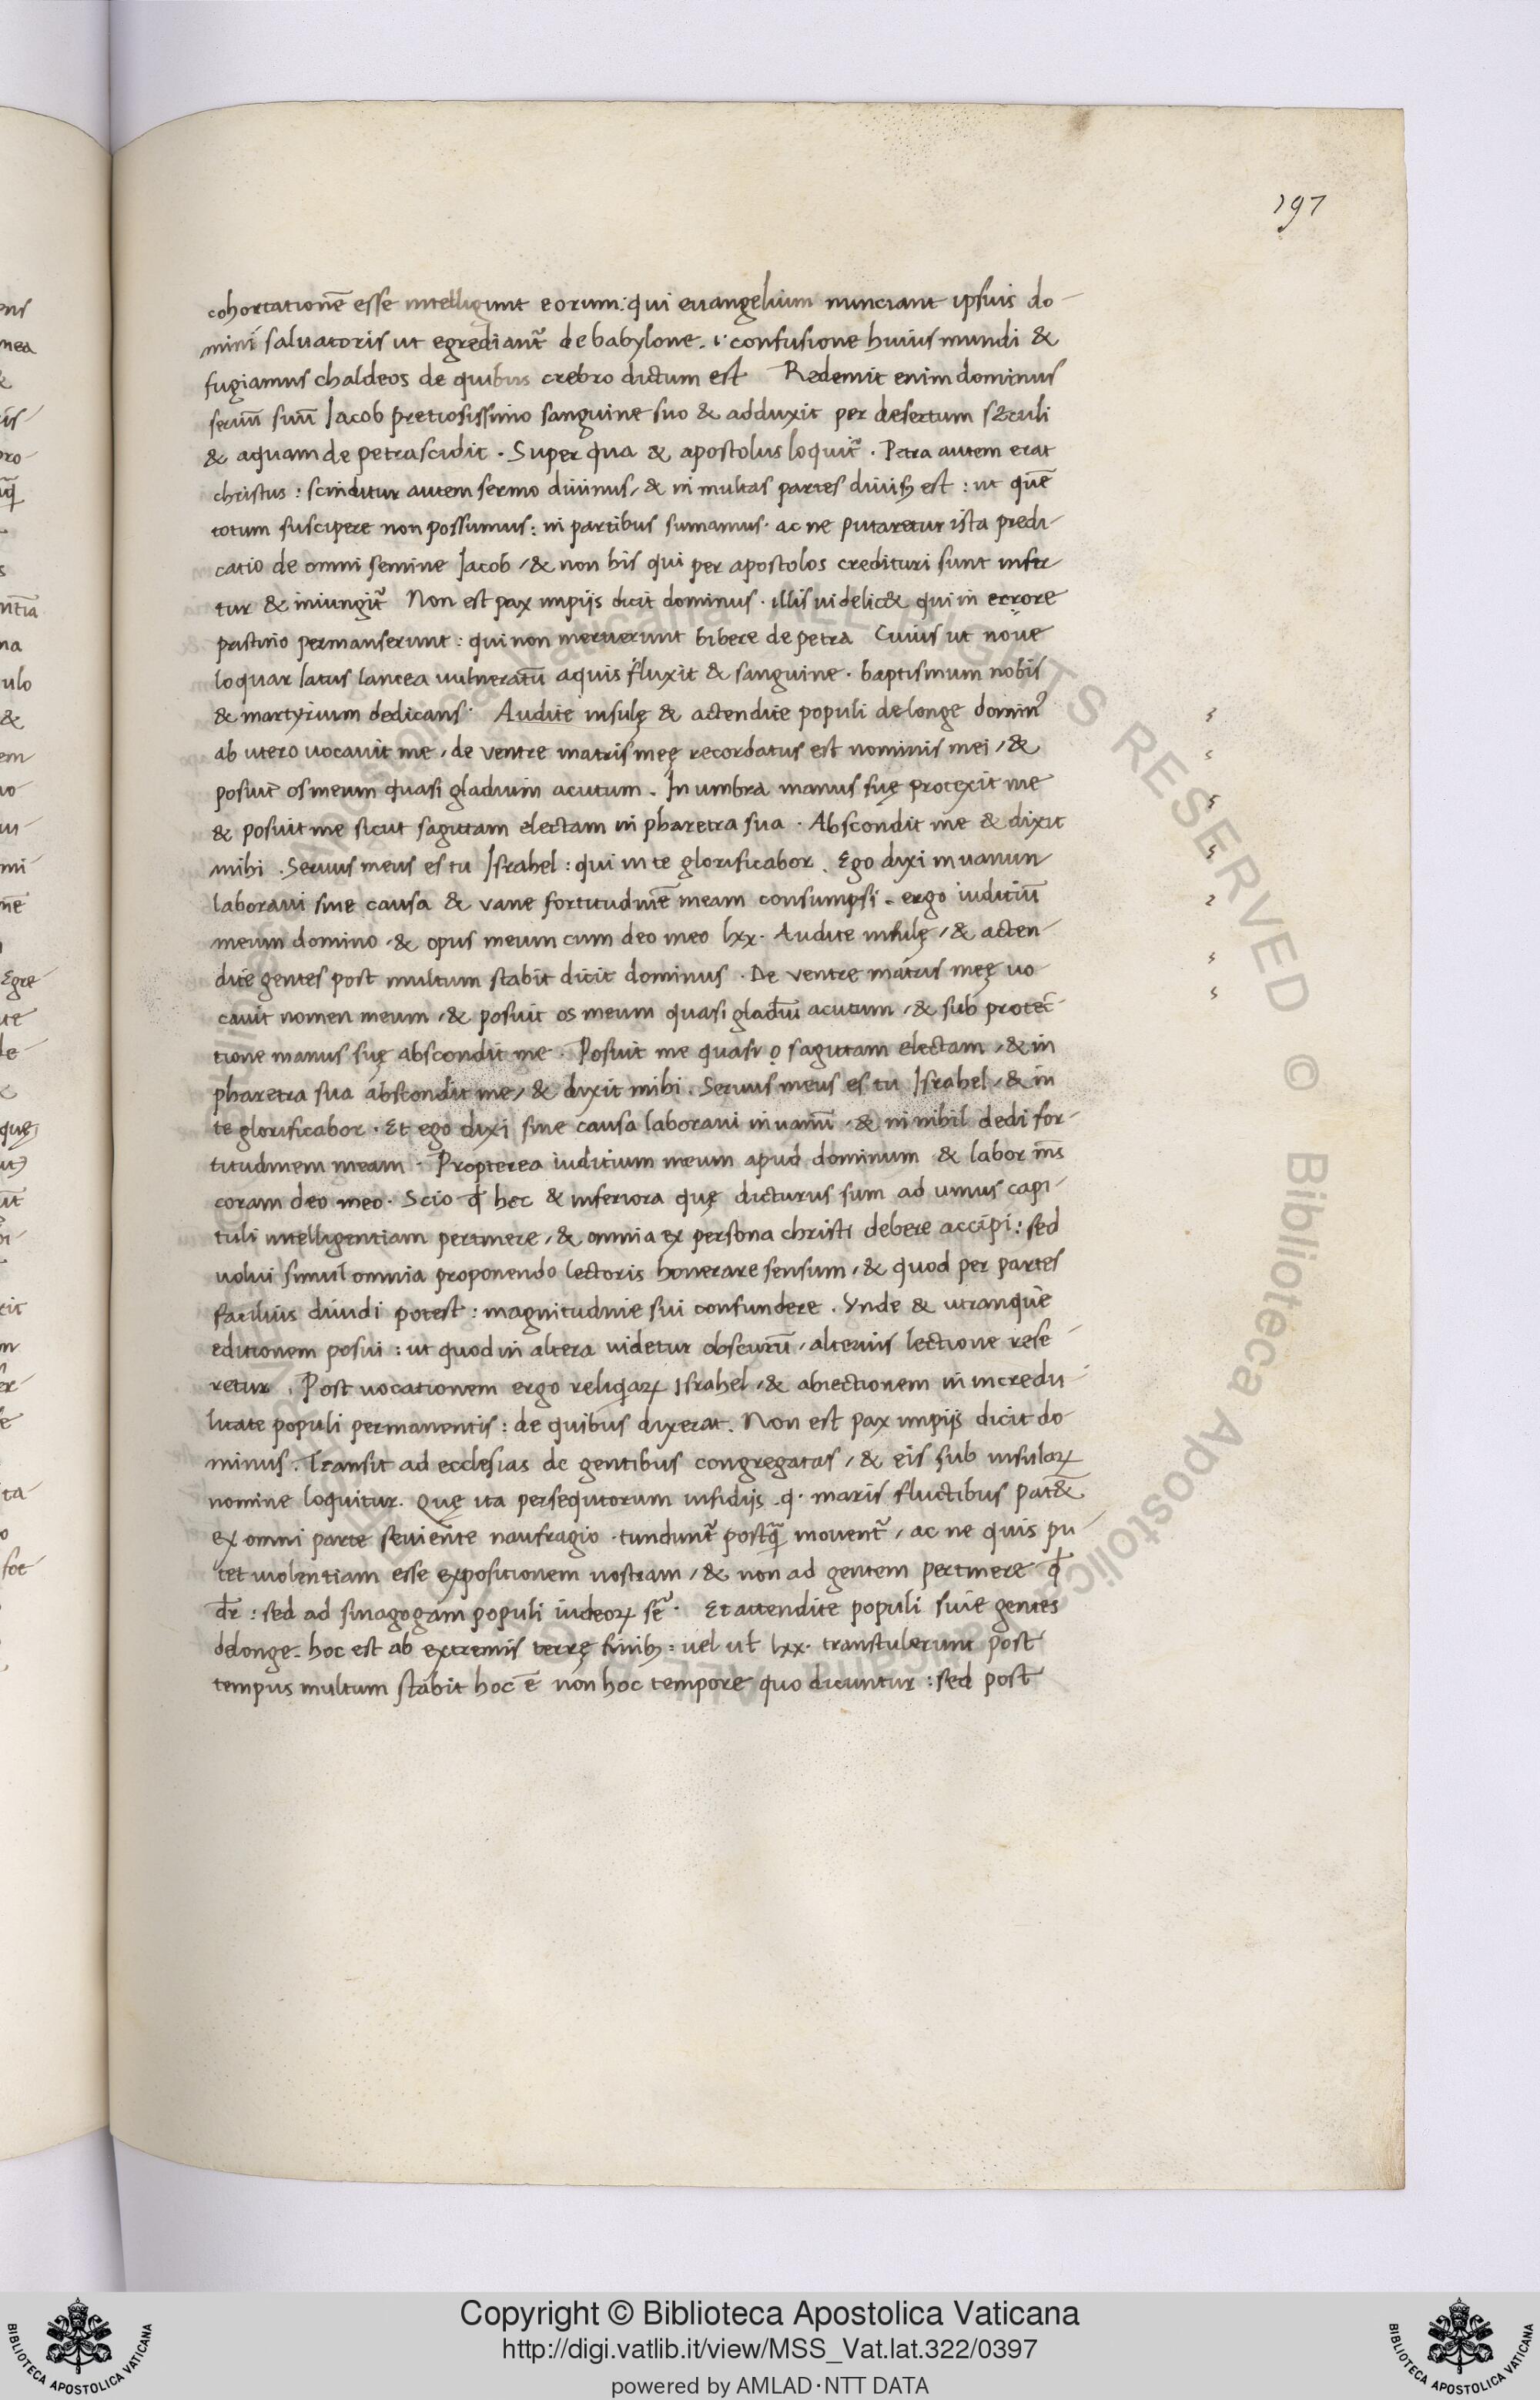 197
cohortationē esse intelligunt eorum: qui euangelium nunciant ipsius do-
mini saluatoris ut egrediant᷑ de babylone. i· confusione huius mundi &
fugiamus chaldeos de quibus crebro dictum est Redemit enim dominus
seruū suū Iacob pretiosissimo sanguine suo & adduxit per desertum sęculi
& aquam de petra scidit. Super qua & apostolus loquit᷑. Petra autem erat
christus: scinditur autem sermo diuinus, & in multas partes diuisus est: ut quē
totum suscipere non possumus: in partibus sumamus. ac ne putaretur ista predi-
catio de omni semine Iacob, & non his qui per apostolos credituri sunt infer
tur & iniungit᷑ Non est pax impijs dicit dominus. illis uidelic& qui in errore
pristino permanserunt: qui non meruerunt bibere de petra Cuius ut noue
loquar latus lancea uulneratū aquis fluxit & sanguine. baptismum nobis
& martyrium dedicans. Audite insulę & actendite populi de longe domin᷒
ab utero uocauit me, de ventre matris meę recordatus est nominis mei, &
posuit os meum quasi gladium acutum. In umbra manus suę protexit me
& posuit me sicut sagittam electam in pharetra sua. Abscondit me & dixit
mihi. Seruus meus es tu Israhel: qui in te glorificabor. Ego dixi in uanum
laboraui sine causa & vane fortitudinē meam consumpsi. ergo iuditiū
meum domino, & opus meum cum deo meo lxx. Audite insulę, & acten-
dite gentes post multum stabit dicit dominus. De ventre matris meę uo
cauit nomen meum, & posuit os meum quasi gladiū acutum, & sub protec-
tione manus suę abscondit me. Posuit me quasi o sagittam electam, & in
pharetra sua abscondit me, & dixit mihi. Seruus meus es tu Israhel, & in
te glorificabor. Et ego dixi sine causa laboraui in uanū, & in nihil dedi for-
titudinem meam. Propterea iuditium meum apud dominum & labor m̄s
coram deo meo. Scio ꝙ hec & inferiora quę dicturus sum ad unius capi-
tuli intelligentiam pertinere, & omnia ex persona christi debere accipi: sed
nolui simul omnia proponendo lectoris honerare sensum, & quod per partes
facilius diuidi potest: magnitudine sui confundere. Vnde & utranque
editionem posui: ut quod in altera uidetur obscurū, alterius lectione rese-
retur. Post uocationem ergo reliquiarꝝ Israhel, & abiectionem in incredu-
litate populi permanentis: de quibus dixerat. Non est pax impijs dicit do-
minus. Transit ad ecclesias de gentibus congregatas, & eis sub insularꝝ
nomine loquitur. Quę ita persequtorum insidijs. q. maris fluctibus pat&
ex omni parte seuiente naufragio. tundunt᷑ postq̄ mouent᷑, ac ne quis pu-
tet uiolentiam esse expositionem nostram, & non ad gentem pertinere ꝙ
dr̄: sed ad sinagogam populi iudeorꝝ Et attendite populi siue gentes
delonge. hoc est ab extremis terrę finibꝫ: uel ut lxx. transtulerunt post
tempus multum stabit hoc ē non hoc tempore quo dicuntur: sed post
Copyright © Biblioteca Apostolica Vaticana
http://digi.vatlib.it/view/MSS_Vat.lat.322/0397
powered by AMLAD·NTT DATA